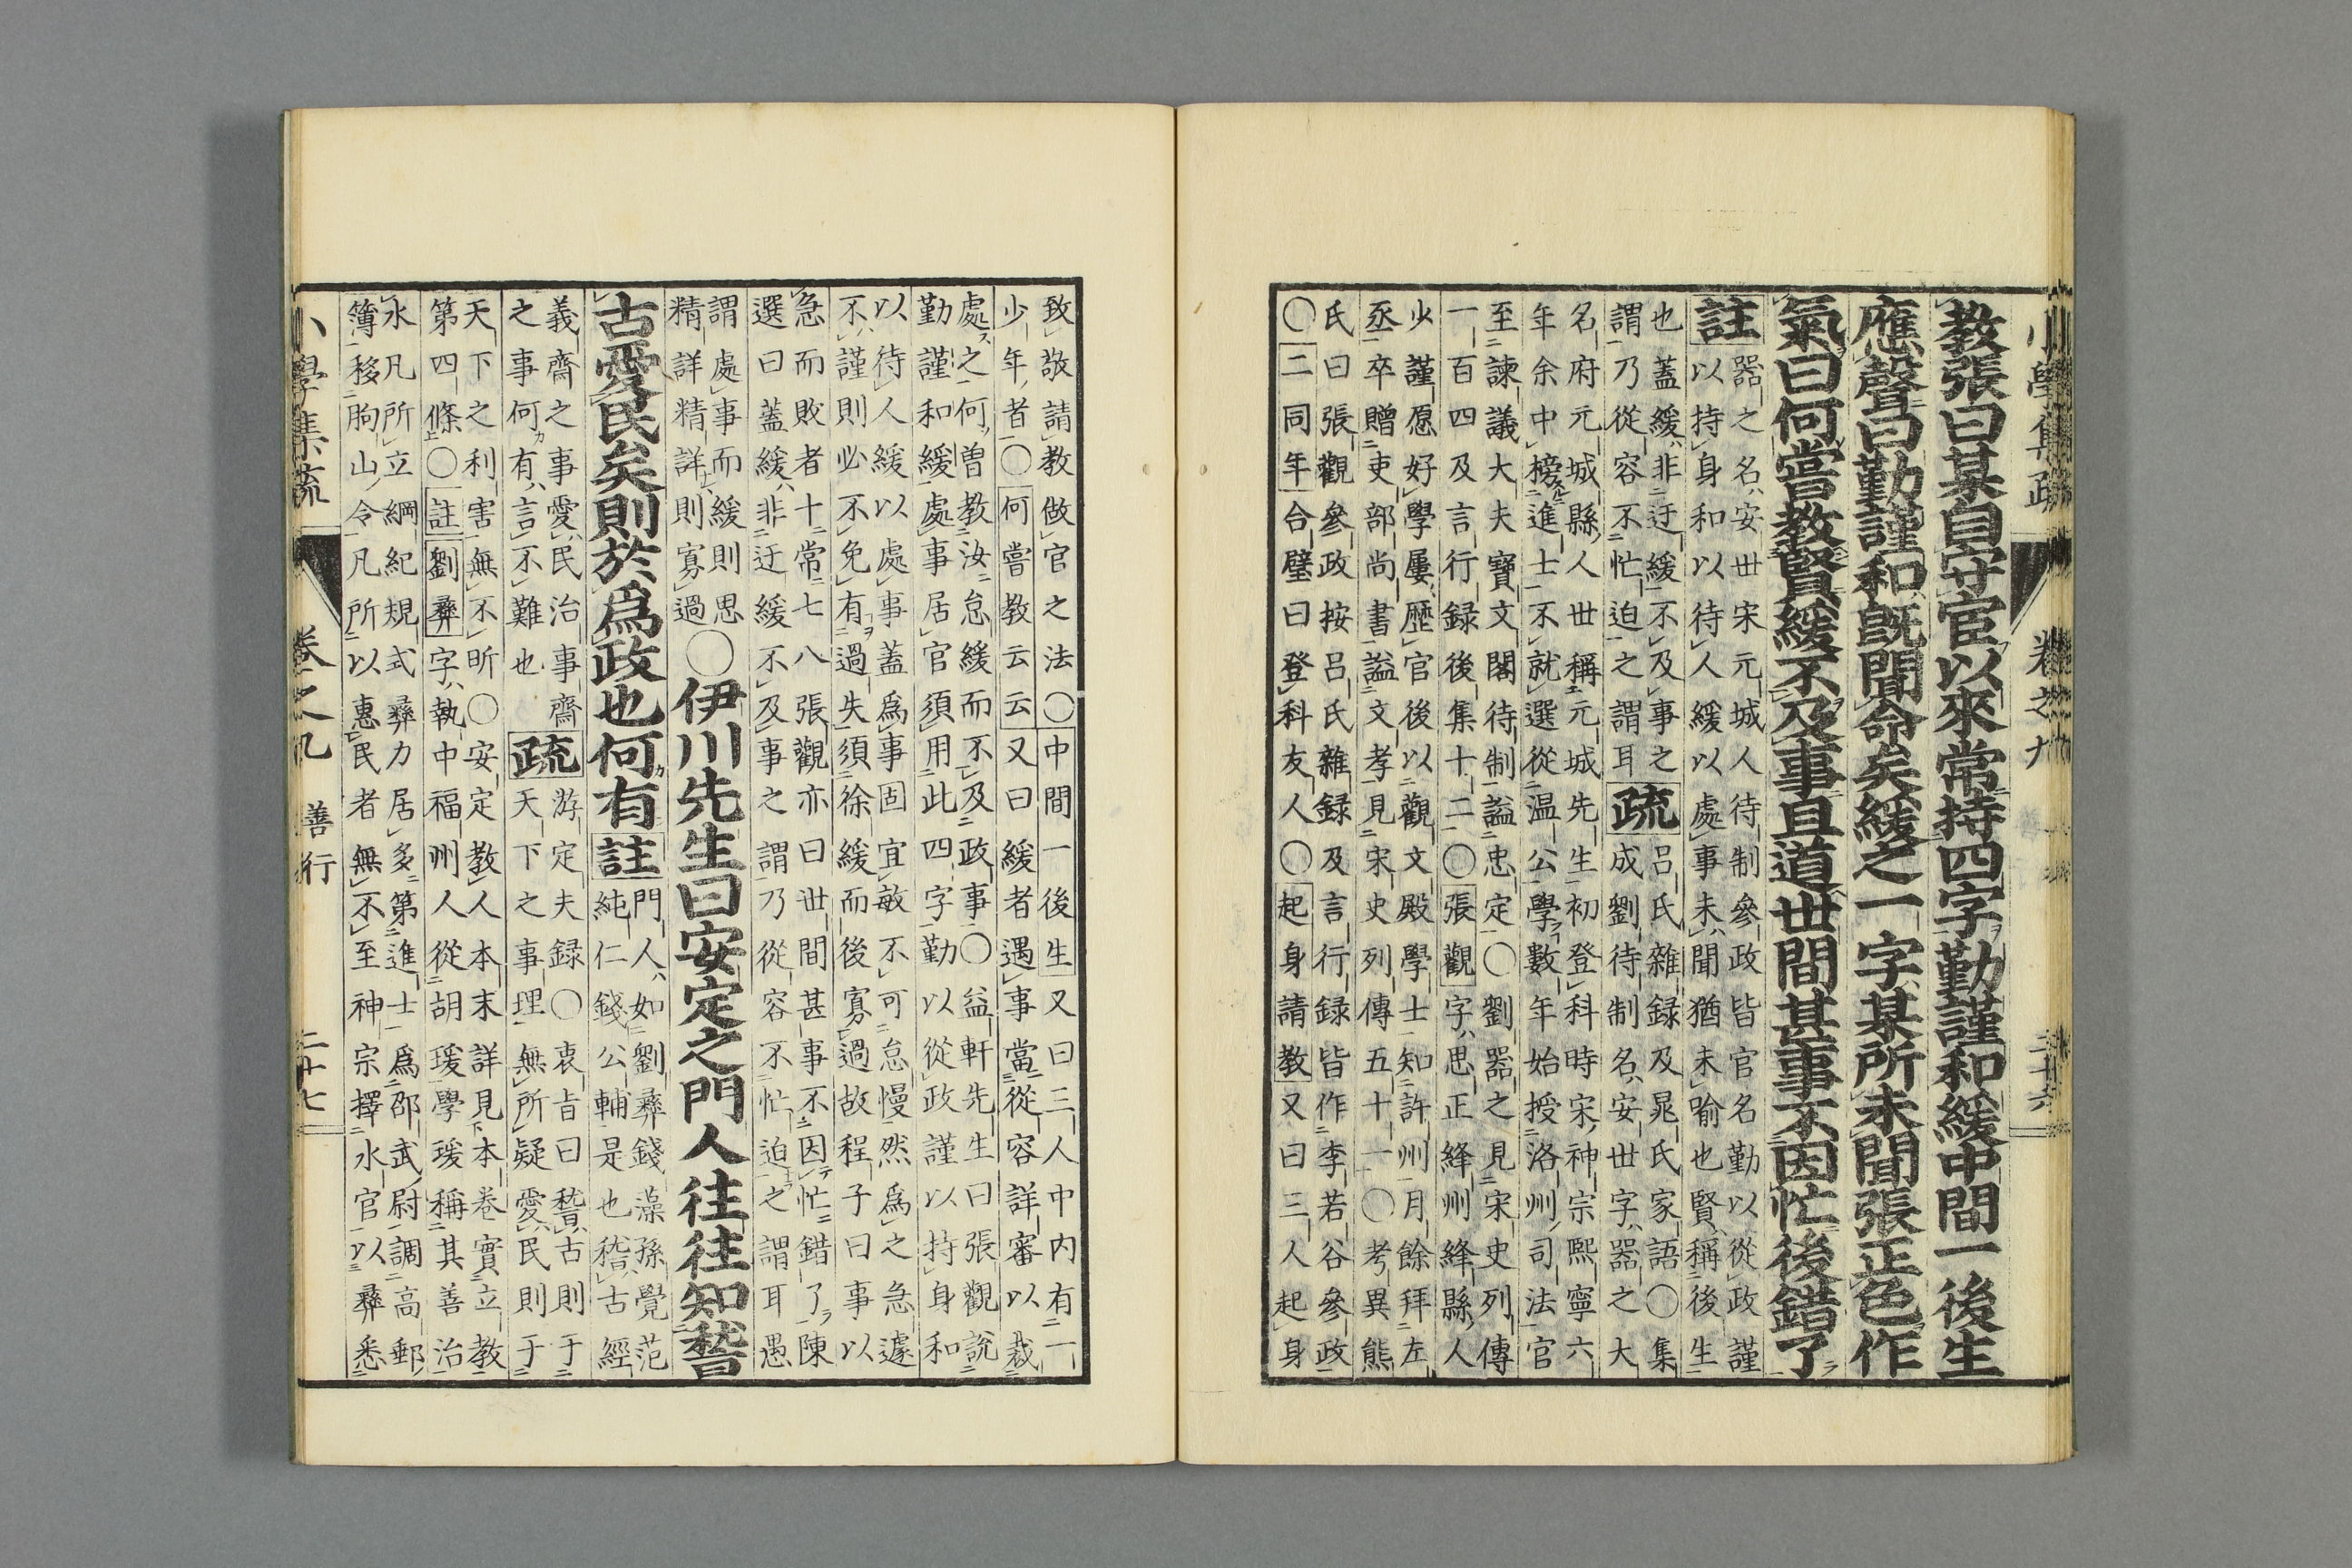 小學集疏 卷之九 三十六
教張曰某自守官以來常持四字勤謹和緩中間一後生
應聲曰勤謹和既聞命矣緩之一字某所未聞張正色作
氣曰何嘗教賢緩不及事且道世間甚事不因忙後錯了
註
器之名安世宋元城人待制參政皆官名勤以從政謹
以持身和以待人緩以處事未聞猶未喻也賢稱後生
也蓋緩非迂緩不及事之
謂乃從容不忙迫之謂耳
疏
呂氏雜録及晁氏家語〇集
成劉待制名安世字器之大
名府元城縣人世稱元城先生初登科時宋神宗熙寧六
年余中榜進士不就選從温公學數年始授洛州司法官
至諫議大夫寶文閣待制謚忠定〇劉器之見宋史列傳
一百四及言行録後集十二〇張觀字思正絳州絳縣人
少謹愿好學屢歷官後以觀文殿學士知許州月餘拜左
丞卒贈吏部尚書謚文孝見宋史列傳五十一〇考異熊
氏曰張觀參政按呂氏雜録及言行録皆作李若谷參政
〇二同年合璧曰登科友人〇起身請教又曰三人起身
致敬請教做官之法〇中間一後生又曰三人中内有一
少年者〇何嘗教云云又曰緩者遇事當從容詳審以裁
處之何曽教汝怠緩而不及政事〇益軒先生曰張觀説
勤謹和緩處事居官須用此四字勤以從政謹以持身和
以待人緩以處事蓋爲事固宜敏不可怠慢然爲之急遽
不謹則必不免有過失須徐緩而後寡過故程子曰事以
急而敗者十常七八張觀亦曰世間甚事不因忙錯了陳
選曰蓋緩非迂緩不及事之謂乃從容不忙迫之謂耳愚
謂處事而緩則思
精詳精詳則寡過
〇伊川先生曰安定之門人往往知稽
古愛民矣則於爲政也何有
註
門人如劉彝錢藻孫覺范
純仁錢公輔是也稽古經
義齋之事愛民治事齋
之事何有言不難也
疏
游定夫録〇衷旨曰稽古則于
天下之事理無所疑愛民則于
天下之利害無不昕〇安定教人本末詳見本卷實立教
第四條〇註劉彝字執中福州人從胡瑗學瑗稱其善治
水凡所立綱紀規式彝力居多第進士爲邵武尉調高郵
簿移胊山令凡所以惠民者無不至神宗擇水官以彝悉
小學集疏 卷之九 善行 三十七